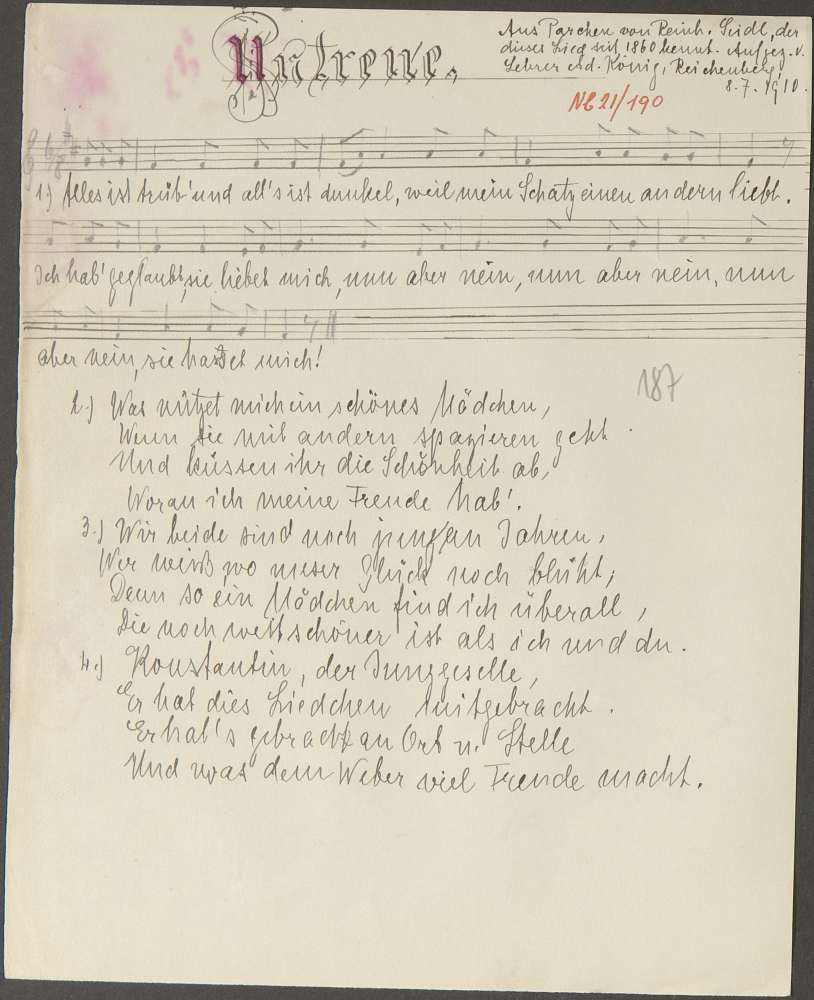 Untreue.
Aus Parchen von Reinh. Seidl, der
dieses Lied seit 1860 kennt. Aufgez. v.
Lehrer Ad. König, Reichenberg,
8.7.1910.
NE 21/190
1.) Alles ist trüb' und all's ist dunkel, weil mein Schatz einen andern liebt.
Ich hab' geglaubt, sie liebet mich, nun aber nein, nun aber nein, nun
aber nein, sie hasset mich!
187
2.) Was nützet mich ein schönes Mädchen,
Wenn sie mit andern spazieren geht
Und küssen ihr die Schönheit ab,
Woran ich meine Freude hab'.
3.) Wir beide sind noch jung an Jahren,
Wer weiß wo unser Glück noch blüht;
Denn so ein Mädchen find ich überall,
Die noch weit schöner ist als ich und du.
4.) Konstantin, der Junggeselle,
Er hat dies Liedchen mitgebracht.
Er hat's gebracht an Ort u. Stelle
Und was dem Weber viel Freude macht.